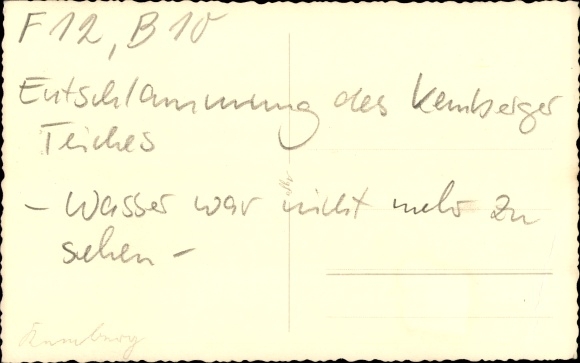 F12, B10
Entschlammung des Kemberger
Teiches
- Wasser war nicht mehr zu
sehen -